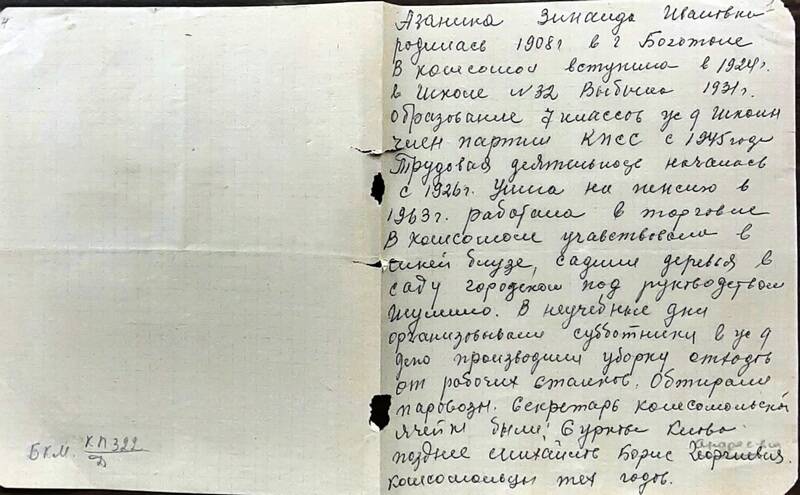 Азанина Зинаида Ивановна
родилась 1908г в г Боготоле
В комсомол вступила в 1924г.
в школе №32 Выбыла 1931г.
образование 7 классов ж д школы
член партии КПСС с 1945 года
Трудовая деятельность началась
с 1926г. Ушла на пенсию в
1963г. работала в торговле
В комсомоле учавствовала в
синей блузе, садили деревья в
саду городском под руководством
В неучебные дни
организовывали субботники в ж д
депо производили уборку отходов
от рабочих станков. Обтирали
паровозы. Секретарь комсомольской
ячейки были:
позднее Михайлов Борис Георгиевич
комсомольцы тех годов.
БКМ. КП 322
Д